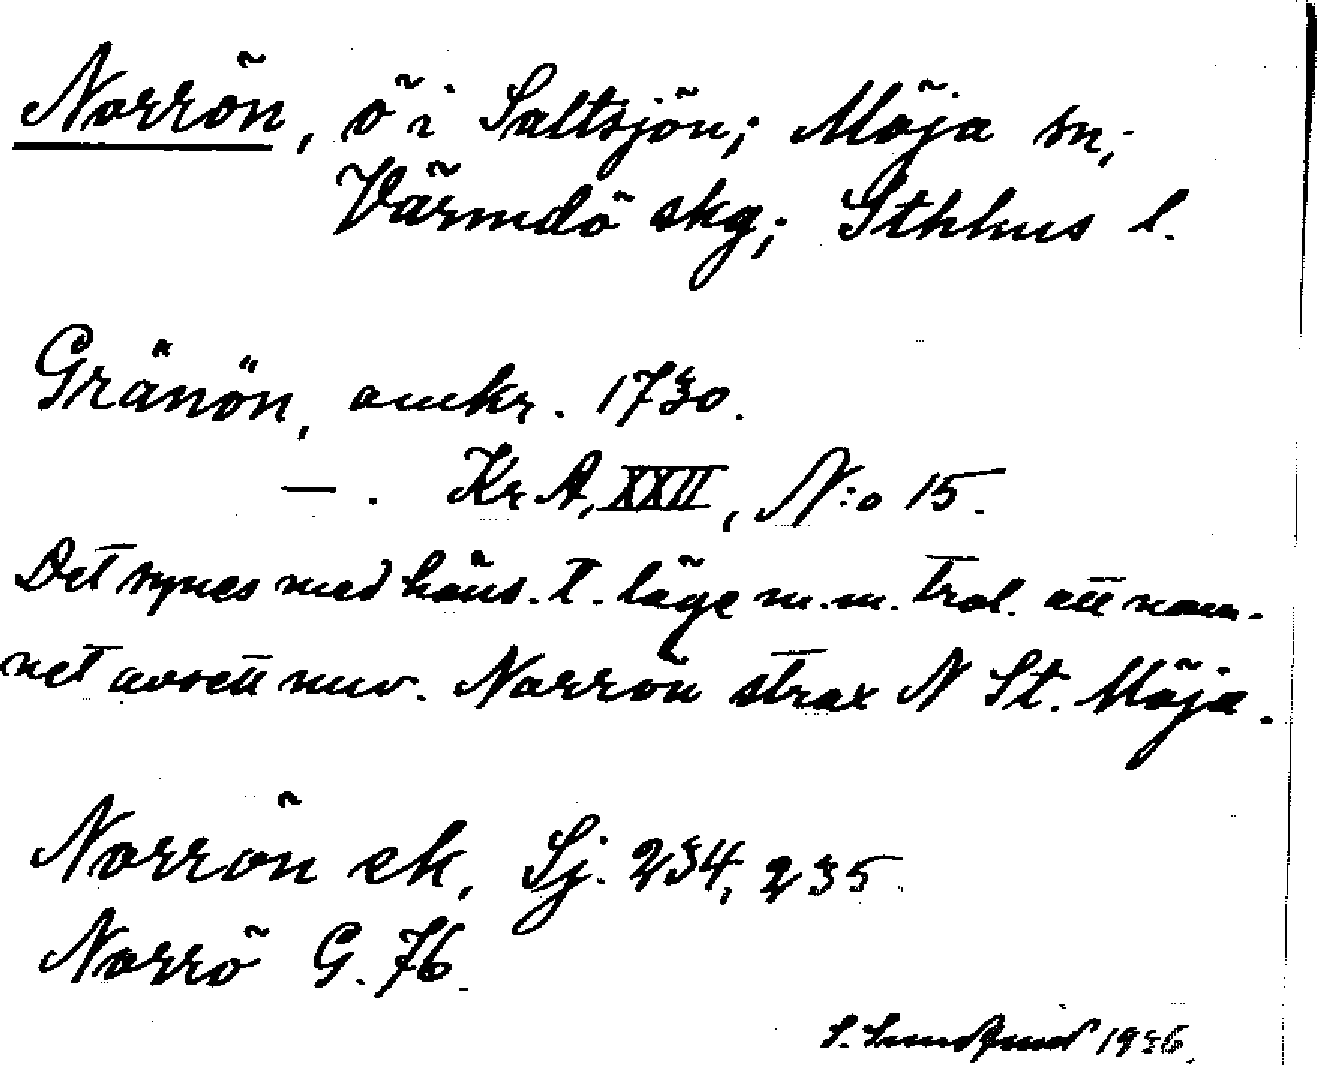 Norrön, ö i Saltsjön; Möja sn;
Värmdö skg; Sthlms l.
Gränön, omkr. 1730.
— . Kr A, XXII, N:o 15.
Det synes med häns. t. läge m.m. trol. att nam-
net avsett nuv. Norrön strax N St. Möja.
Norrön ek, Sj. 234, 235.
Norrö G. 76.
S. 1936.